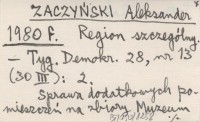 ZACZYŃSKI Aleksander
1980 f. Region szczególny.
— Tyg. Demokr. 28, nr 13
(30 III): 2.
Sprawa dodatkowych po-
mieszczeń na zbiory Muzeum